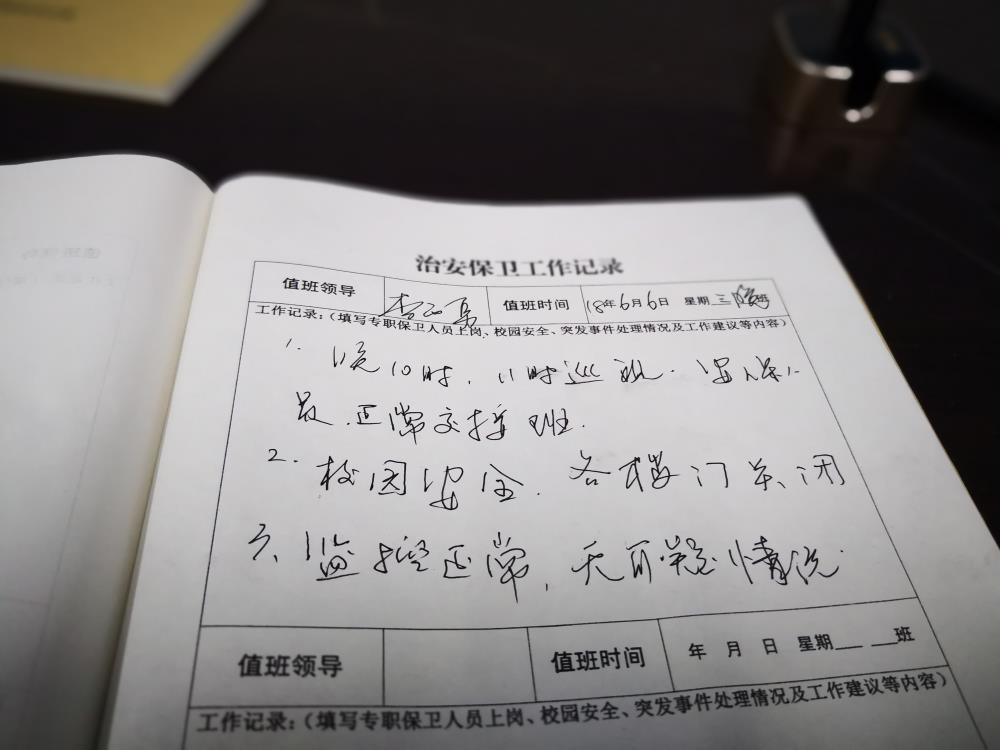 治安保卫工作记录
值班领导 值班时间 18年6月6日 星期三晚班
工作记录：（填写专职保卫人员上岗、校园安全、突发事件处理情况及工作建议等内容）
1. 晚10时，11时巡视. 安保人
员.正常交接班.
2. 校园安全. 各楼门关闭
3、监控正常，无可疑情况.
值班领导 值班时间 年 月 日 星期___ ___班
工作记录：（填写专职保卫人员上岗、校园安全、突发事件处理情况及工作建议等内容）